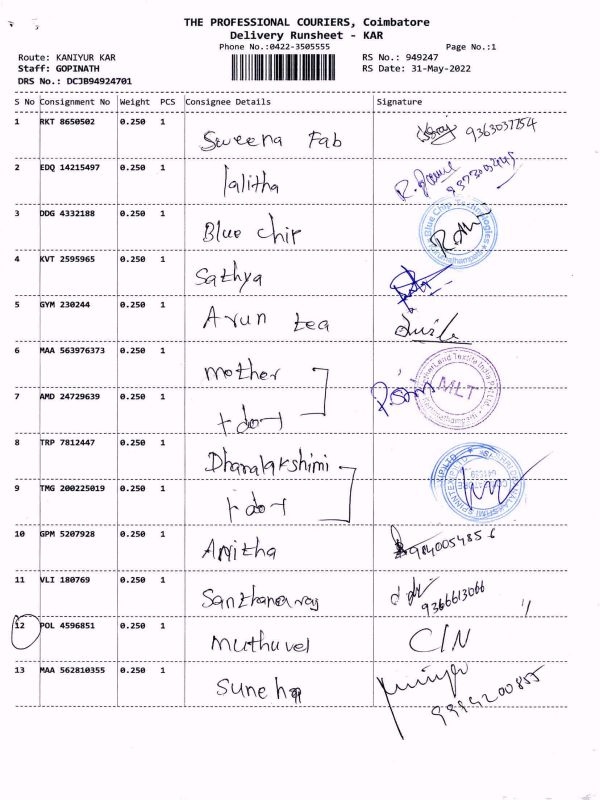 THE PROFESSIONAL COURIERS, Coimbatore
Delivery Runsheet - KAR
Phone No.:0422-3505555
Page No.:1
Route: KANIYUR KAR
RS No.: 949247
Staff: GOPINATH
RS Date: 31-May-2022
DRS No.: DCJB94924701
S No Consignment No Weight PCS Consignee Details Signature
1 RKT 8650502 0.250 1 Sweena Fab 9363037754
2 EDQ 14215497 0.250 1 lalitha
3 DDG 4332188 0.250 1 Blue chip Blue Chip
4 KVT 2595965 0.250 1 Sathya
5 GYM 230244 0.250 1 Arun tea
6 MAA 563976373 0.250 1 mother
7 AMD 24729639 0.250 1 MLT
8 TRP 7812447 0.250 1 Dhanalakshimi
9 TMG 200225019 0.250 1
10 GPM 5207928 0.250 1 Anitha 9840054856
11 VLI 180769 0.250 1 9366613066
12 POL 4596851 0.250 1 Muthuvel C/N
13 MAA 562810355 0.250 1 Suneha 9994200855